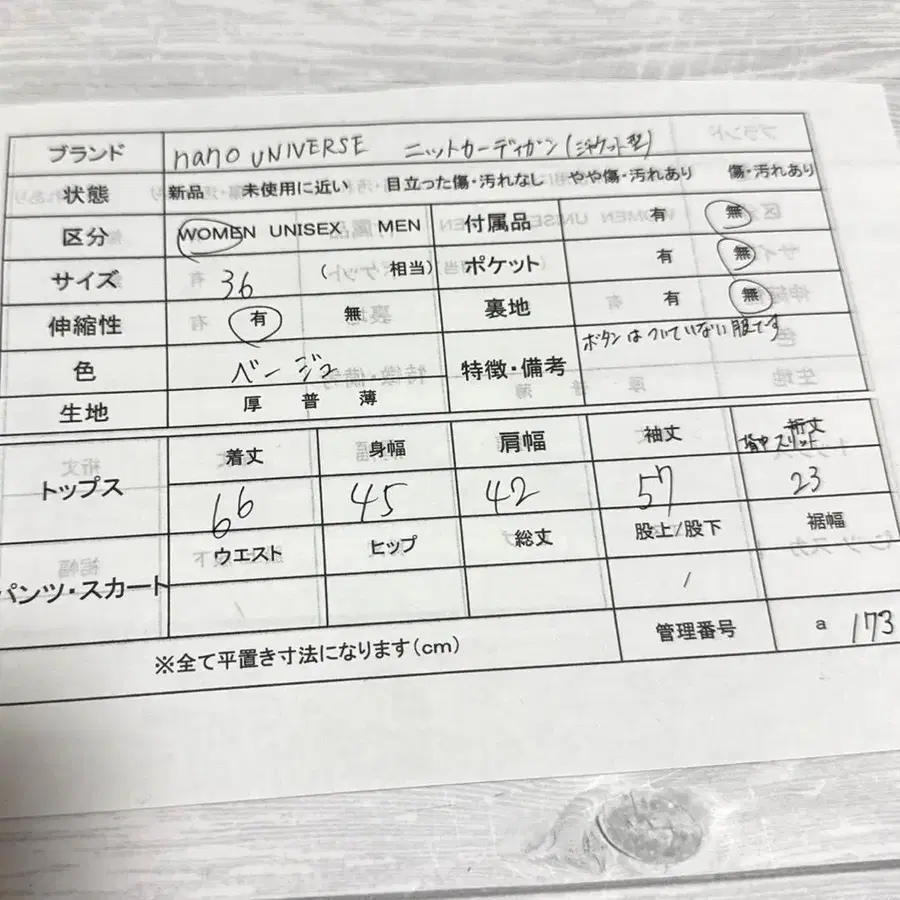 ブランド nano UNIVERSE ニットカーディガン(ジャケット型)
状態 新品 未使用に近い 目立った傷・汚れなし やや傷・汚れあり 傷・汚れあり
区分 WOMEN UNISEX MEN 付属品 有 無
サイズ 36 ( 相当) ポケット 有 無
伸縮性 有 無 裏地 有 無
色 ベージュ 特徴・備考 ボタンはついていない服です
生地 厚 普 薄
トップス 着丈 身幅 肩幅 袖丈 裄丈 背中スリット
66 45 42 57 23
パンツ・スカート ウエスト ヒップ 総丈 股上/股下 裾幅
/
※全て平置き寸法になります(cm) 管理番号 a 173